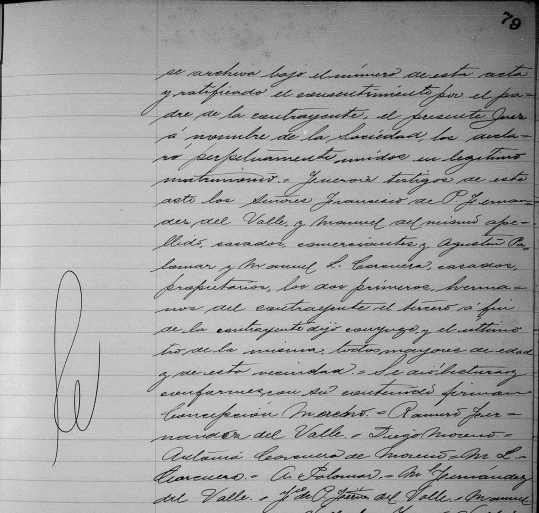 79
se archiva bajo el número de esta acta
y ratificado el consentimiento por el pa-
dre de la contrayente, el presente Juez
á nombre de la Sociedad, los decla-
ró perpetuamente unidos en legitimo
matrimonio. = Fueron testigos de este
acto los Señores Francisco de P. Fernan-
dez del Valle, y Manuel del mismo ape-
llido, casados, comerciantes, y Agustin Pa-
lomar y Manuel L. Corcuera, casados,
propietarios, los dos primeros, herma-
nos del contrayente el tercero á fin
de la contrayente dijo conyugo, y el ultimo
tio de la misma, todos mayores de edad
y de esta vecindad. = Se dió lectura y
conformes con su contenido firman
Concepción Moreno. = Ramiro Fer-
nandez del Valle. = Diego Moreno. =
Antonia Corcuera de Moreno = M. L.
Corcuera. = A. Palomar. = M. Fernández
del Valle. = F. de P. Fern. del Valle. = Manuel